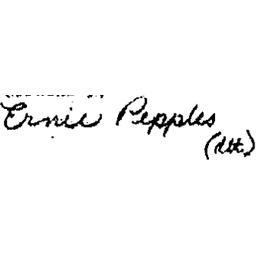 Ernie Pepples